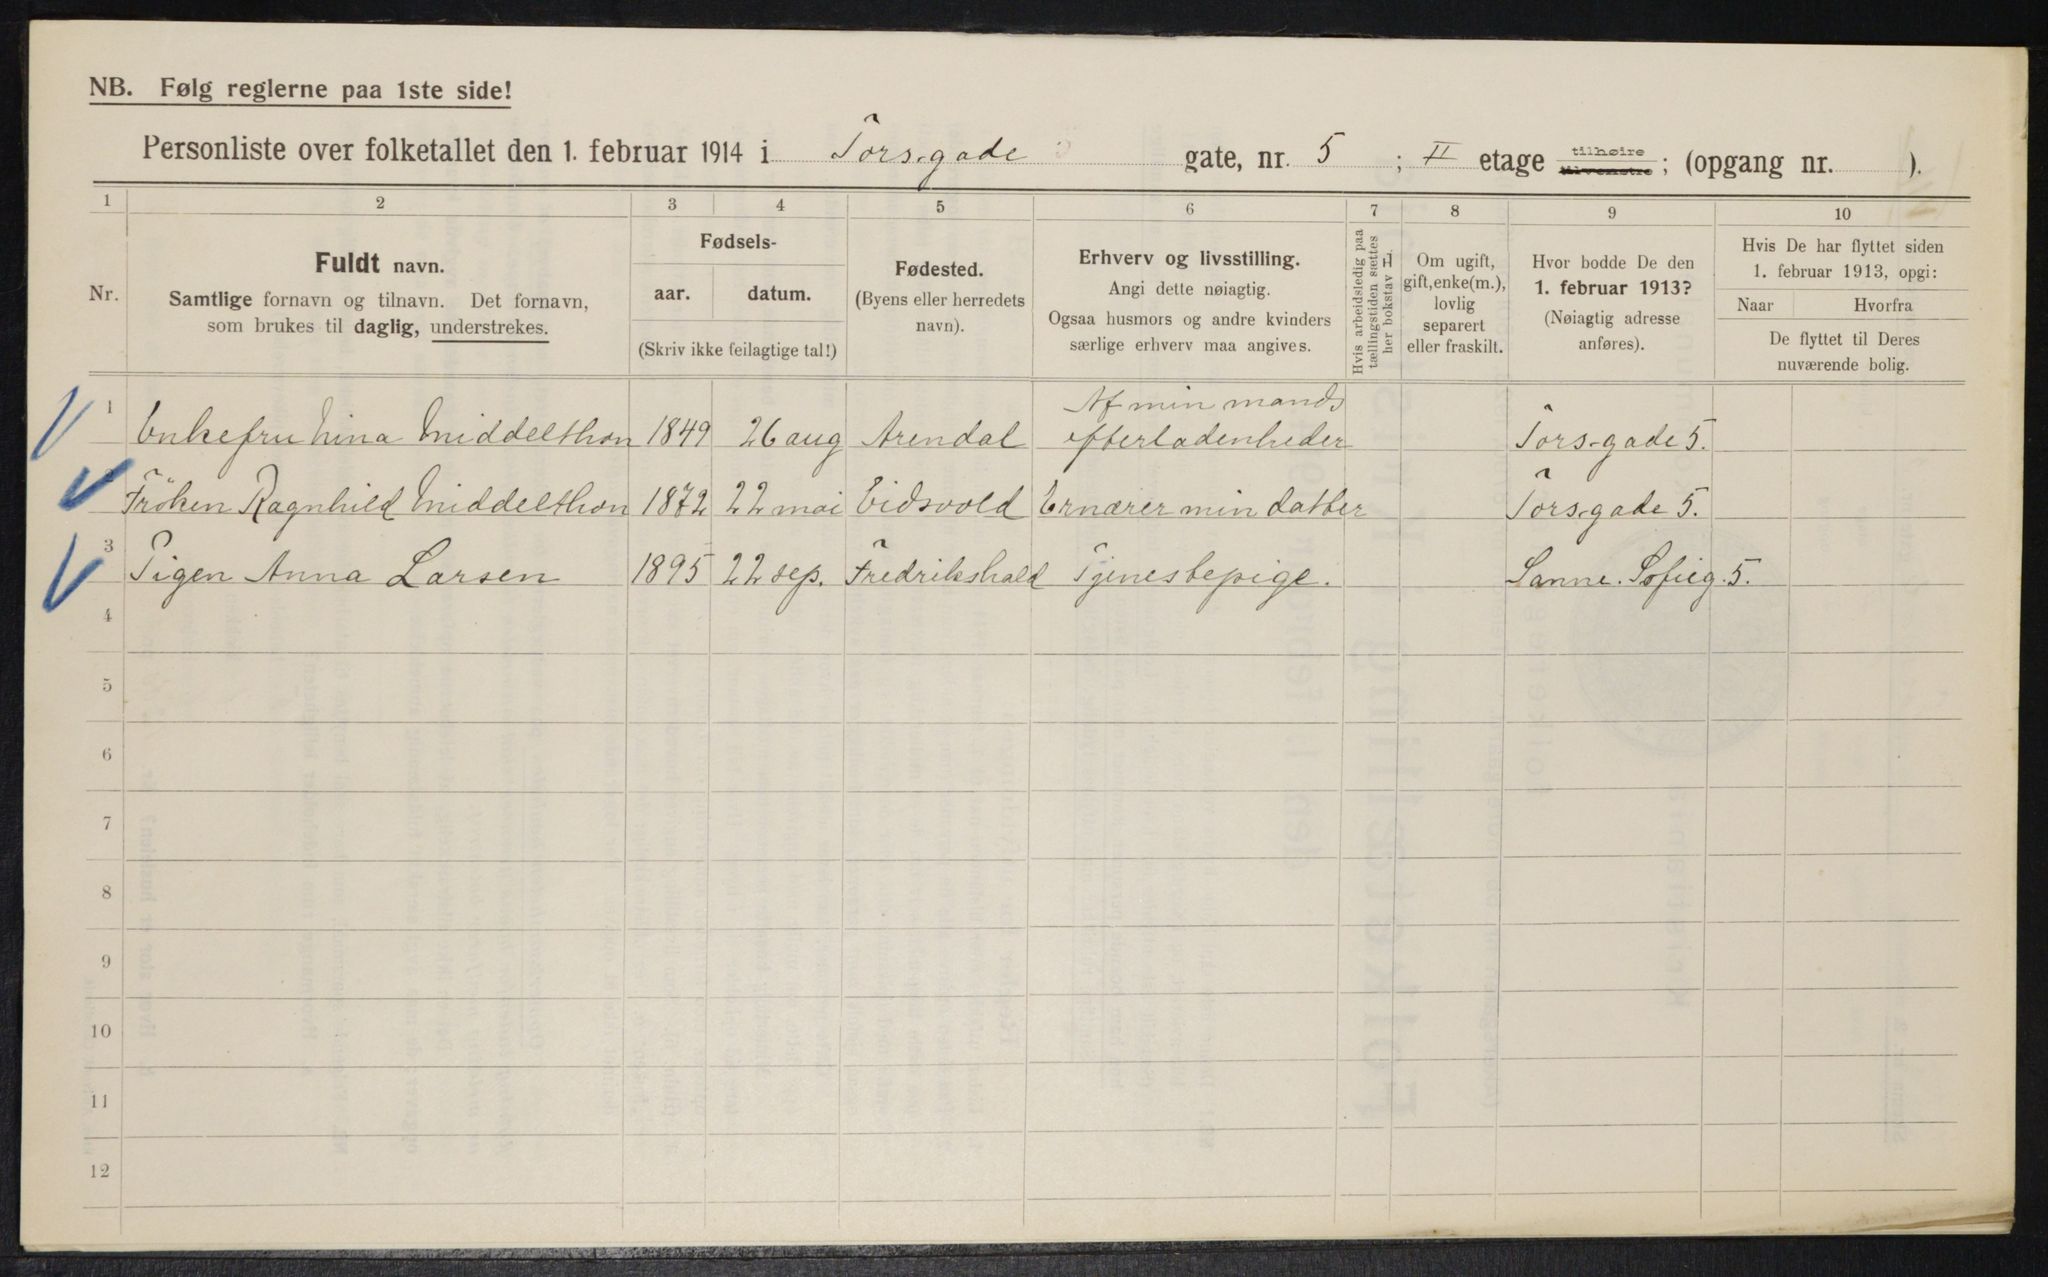 NB. Følg reglerne paa 1ste side!
Personliste over folketallet den 1. februar 1914 i Torsgade gate, nr. 5 ; II etage tilhøire tilvenstre ; (opgang nr. ).
1 2 3 4 5 6 7 8 9 10
Nr.
Fuldt navn.
Samtlige fornavn og tilnavn. Det fornavn,
som brukes til daglig, understrekes.
Fødsels-
aar. datum.
(Skriv ikke feilagtige tal!)
Fødested.
(Byens eller herredets
navn).
Erhverv og livsstilling.
Angi dette nøiagtig.
Ogsaa husmors og andre kvinders
særlige erhverv maa angives.
Hvis arbeidsledig paa
tællingstiden sættes
her bokstav L.
Om ugift,
gift, enke(m.),
lovlig
separert
eller fraskilt.
Hvor bodde De den
1. februar 1913?
(Nøiagtig adresse
anføres).
Hvis De har flyttet siden
1. februar 1913, opgi:
Naar Hvorfra
De flyttet til Deres
nuværende bolig.
Af min mands
1 Enkefru Nina Middelthon 1849 26 aug Arendal efterladenheder Torsgade 5.
2 Fröken Ragnhild Middelthon 1872 22 mai Eidsvold Ernærer min datter Torsgade 5.
3 Pigen Anna Larsen 1895 22 sep. Fredrikshald Tjenestepige. Sanne. Sofieg. 5.
4
5
6
7
8
9
10
11
12